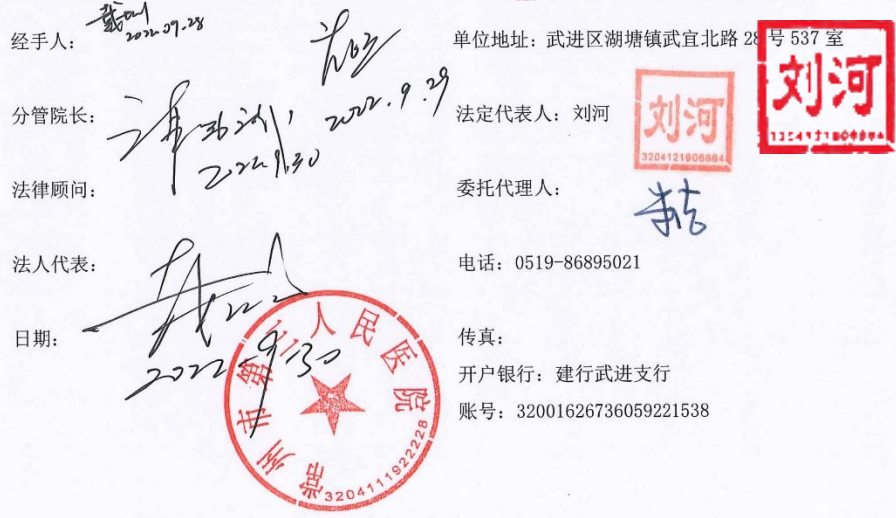 经手人：
2022.09.28
分管院长：
2022.9.29
2022.9.30
法律顾问：
法人代表：
日期：
2022-9-30
常州市第三人民医院
3204111922228
单位地址：武进区湖塘镇武宜北路 28号 537 室
法定代表人：刘河
刘河
3204121906864
刘河
委托代理人：
电话：0519-86895021
传真：
开户银行：建行武进支行
账号：32001626736059221538